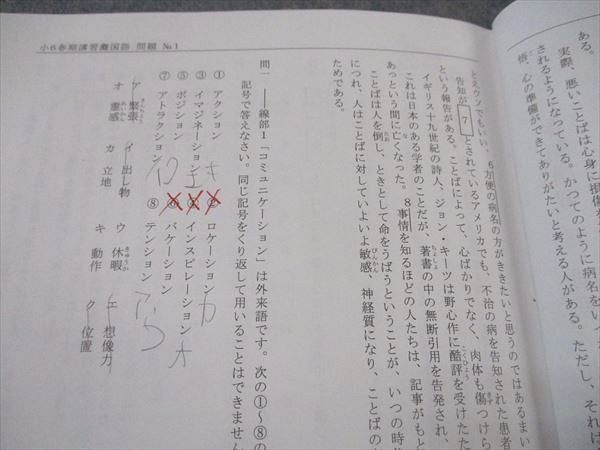 小6春期講習灘国語 問題 №1
ある。
実際、悪いことばは心身に損傷を
されるようになっている。かつてのように病名をい
悟、心の準備ができてありがたいと考える人がある。ただし、それ
とをウソでもいい、6方便の病名の方がききたいと思うのではあるまい
告知が 7 とされているアメリカでも、不治の病を告知された患者
という報告がある。ことばによって、心ばかりでなく、肉体も傷つけら
イギリス十九世紀の詩人、ジョン・キーツは野心作に酷評を受けた
これは日本のある学者のことだが、著書の中の無断引用を告発され、
あっという間に亡くなった。8事情を知るほどの人たちは、記事がもと
ことばは人を倒し、ときとして命をうばうということが、いつの時
につれ、人はことばに対していよいよ敏感、神経質になり、ことばの
ためである。
問一 ――線部1「コミュニケーション」は外来語です。次の①～⑧の
記号で答えなさい。同じ記号をくり返して用いることはできません
① アクション キ ② ロケーション カ
③ イマジネーション エ ④ インスピレーション オ
⑤ ポジション ク ⑥ バケーション ウ
⑦ アトラクション イ ⑧ テンション ア
ア 緊張 イ 出し物 ウ 休暇 エ 想像力
オ 霊感 カ 立地 キ 動作 ク 位置